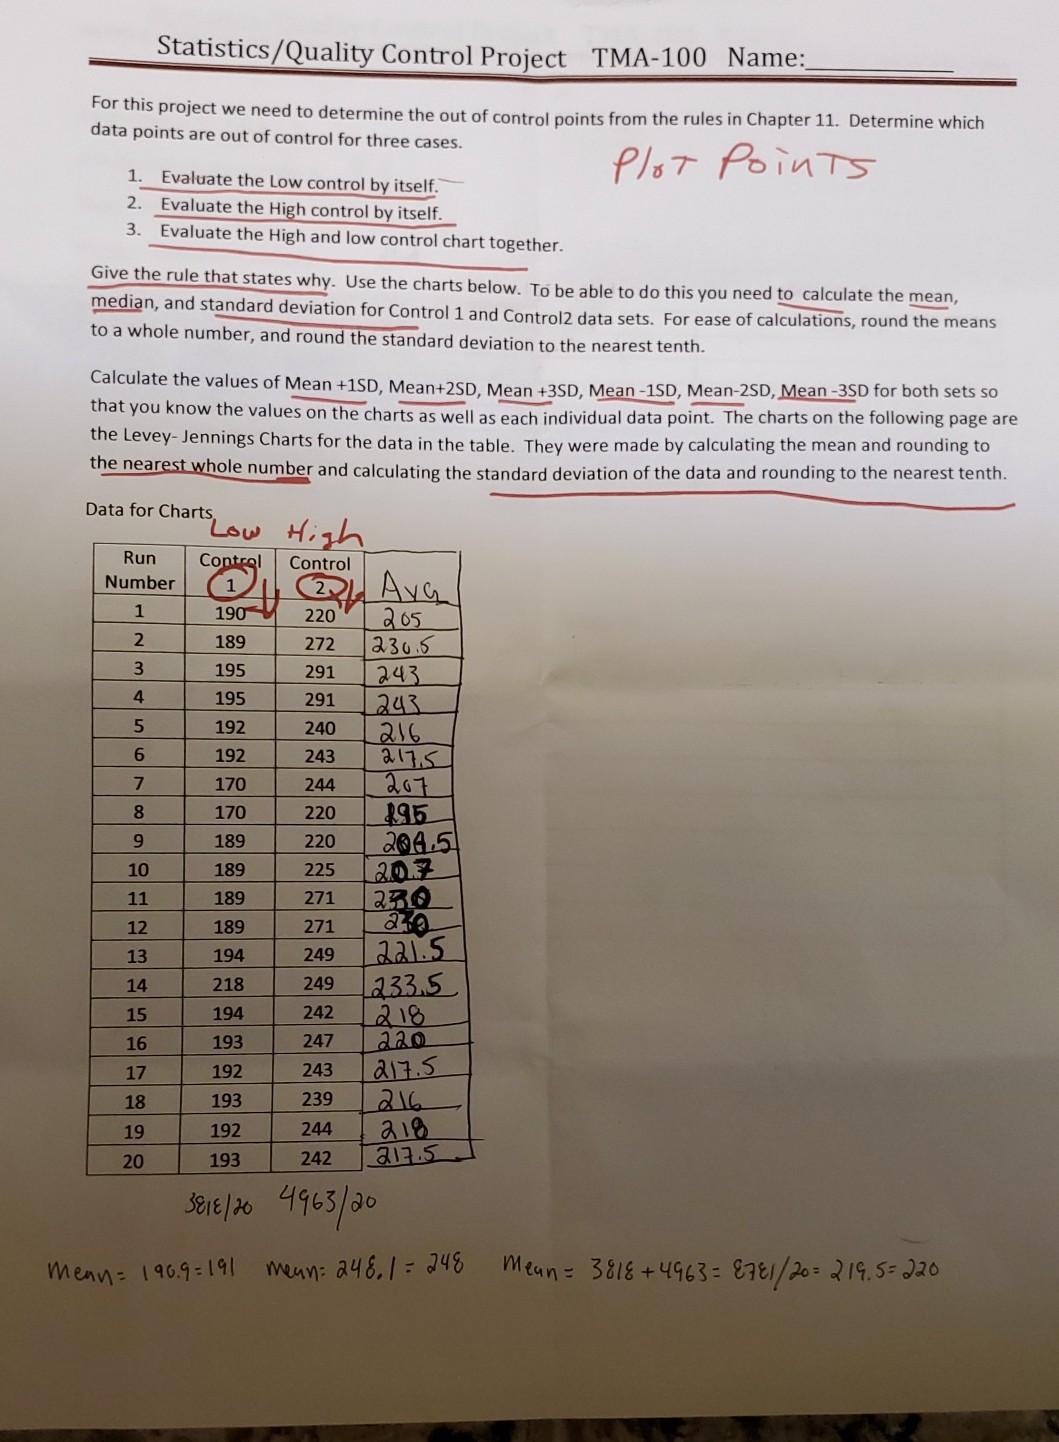 Statistics/Quality Control Project TMA-100 Name:
For this project we need to determine the out of control points from the rules in Chapter 11. Determine which
data points are out of control for three cases.
Plot Points
1. Evaluate the Low control by itself.
2. Evaluate the High control by itself.
3. Evaluate the High and low control chart together.
Give the rule that states why. Use the charts below. To be able to do this you need to calculate the mean,
median, and standard deviation for Control 1 and Control2 data sets. For ease of calculations, round the means
to a whole number, and round the standard deviation to the nearest tenth.
Calculate the values of Mean +1SD, Mean+2SD, Mean +3SD, Mean -1SD, Mean-2SD, Mean -3SD for both sets so
that you know the values on the charts as well as each individual data point. The charts on the following page are
the Levey- Jennings Charts for the data in the table. They were made by calculating the mean and rounding to
the nearest whole number and calculating the standard deviation of the data and rounding to the nearest tenth.
Data for Charts
Low High
Run Number Control 1 Control 2 Avg
1 190 220 205
2 189 272 230.5
3 195 291 243
4 195 291 243
5 192 240 216
6 192 243 217.5
7 170 244 207
8 170 220 195
9 189 220 204.5
10 189 225 207
11 189 271 230
12 189 271 230
13 194 249 221.5
14 218 249 233.5
15 194 242 218
16 193 247 220
17 192 243 217.5
18 193 239 216
19 192 244 218
20 193 242 217.5
3818/20 4963/20
Mean= 190.9=191 mean= 248.1 = 248 Mean = 3818 + 4963 = 8781/20= 219.5=220